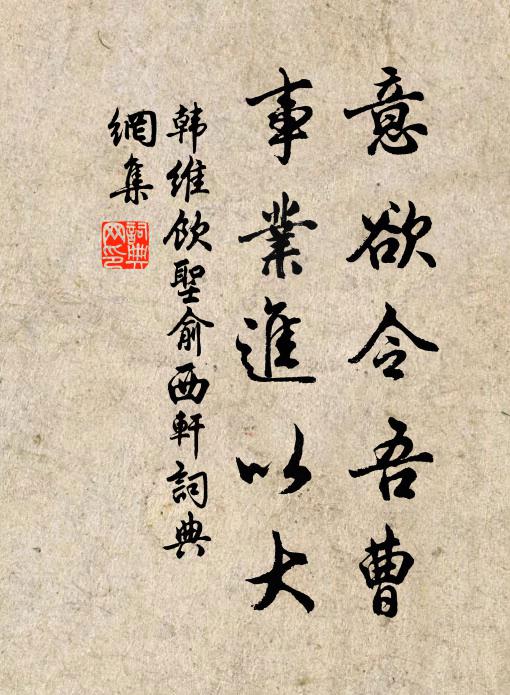 意欲令吾曹
事業進以大
韩维饮聖俞西軒詞典
網集
詞典
网印